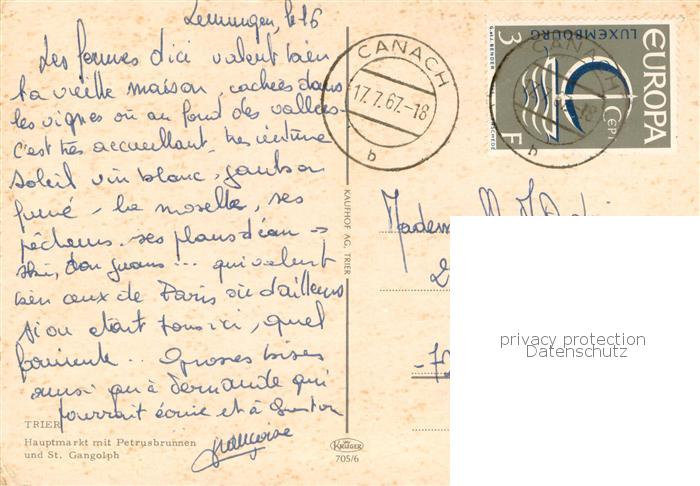 Lenningen, le 16
Les fermes d'ici valent bien
ta vieille maison, cachées dans
les vignes ou au fond des vallées
c'est très accueillant, très intime
soleil vin blanc, jambon
fumé - la moselle, ses
pêcheurs. ses plans d'eau →
ski, don juans ... qui valent
bien ceux de Paris où d'ailleurs
si on était tous ici, quel
... Grosses bises
aussi qu'à Fernande qui
pourrait écrire et à
Françoise
TRIER
Hauptmarkt mit Petrusbrunnen
und St. Gangolph
KAUFHOF AG. TRIER
KRÜGER
705/6
CANACH
17.7.67.-18
b
CANACH
b
EUROPA
CEPT
LUXEMBOURG
3 F
G.+J. BENDER
Madame
privacy protection
Datenschutz